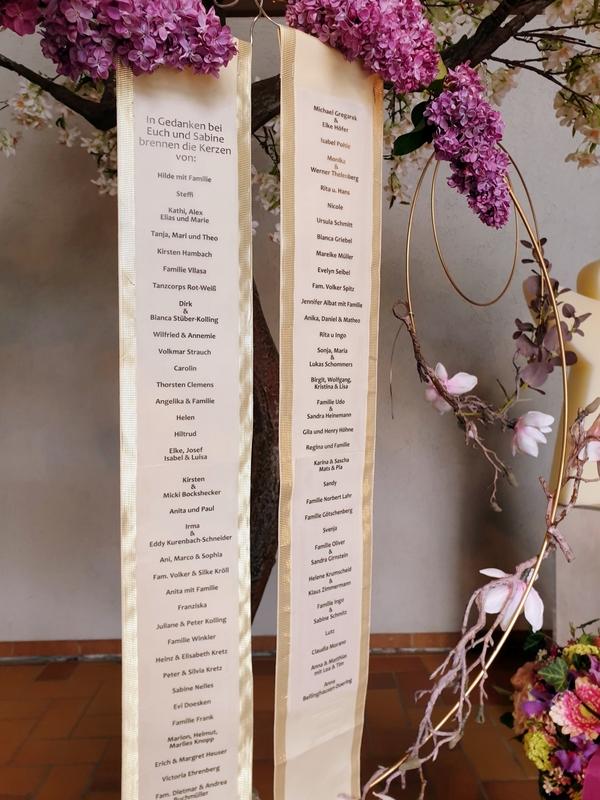 In Gedanken bei
Euch und Sabine
brennen die Kerzen
von:
Hilde mit Familie
Steffi
Kathi, Alex
Elias und Marie
Tanja, Mari und Theo
Kirsten Hambach
Familie Vllasa
Tanzcorps Rot-Weiß
Dirk
&
Bianca Stüber-Kolling
Wilfried & Annemie
Volkmar Strauch
Carolin
Thorsten Clemens
Angelika & Familie
Helen
Hiltrud
Elke, Josef
Isabel & Luisa
Kirsten
&
Micki Bockshecker
Anita und Paul
Irma
&
Eddy Kurenbach-Schneider
Ani, Marco & Sophia
Fam. Volker & Silke Kröll
Anita mit Familie
Franziska
Juliane & Peter Kolling
Familie Winkler
Heinz & Elisabeth Kretz
Peter & Silvia Kretz
Sabine Nelles
Evi Doesken
Familie Frank
Marion, Helmut,
Marlies Knopp
Erich & Margret Heuser
Victoria Ehrenberg
Fam. Dietmar & Andrea
Buchmüller
Michael Gregarek
&
Elke Höfer
Isabel Pohle
Monika
&
Werner Thelenberg
Rita u. Hans
Nicole
Ursula Schmitt
Bianca Griebel
Mareike Müller
Evelyn Seibel
Fam. Volker Spitz
Jennifer Albat mit Familie
Anika, Daniel & Matheo
Rita u Ingo
Sonja, Maria
&
Lukas Schommers
Birgit, Wolfgang,
Kristina & Lisa
Familie Udo
&
Sandra Heinemann
Gila und Henry Höhne
Regina und Familie
Karina & Sascha
Mats & Pia
Sandy
Familie Norbert Lahr
Familie Götschenberg
Svenja
Familie Oliver
&
Sandra Girnstein
Helene Krumscheid
&
Klaus Zimmermann
Familie Ingo
&
Sabine Schmitz
Lutz
Claudia Morano
Anna & Matthias
mit Lea & Tim
Anna
Bellinghausen-Doering